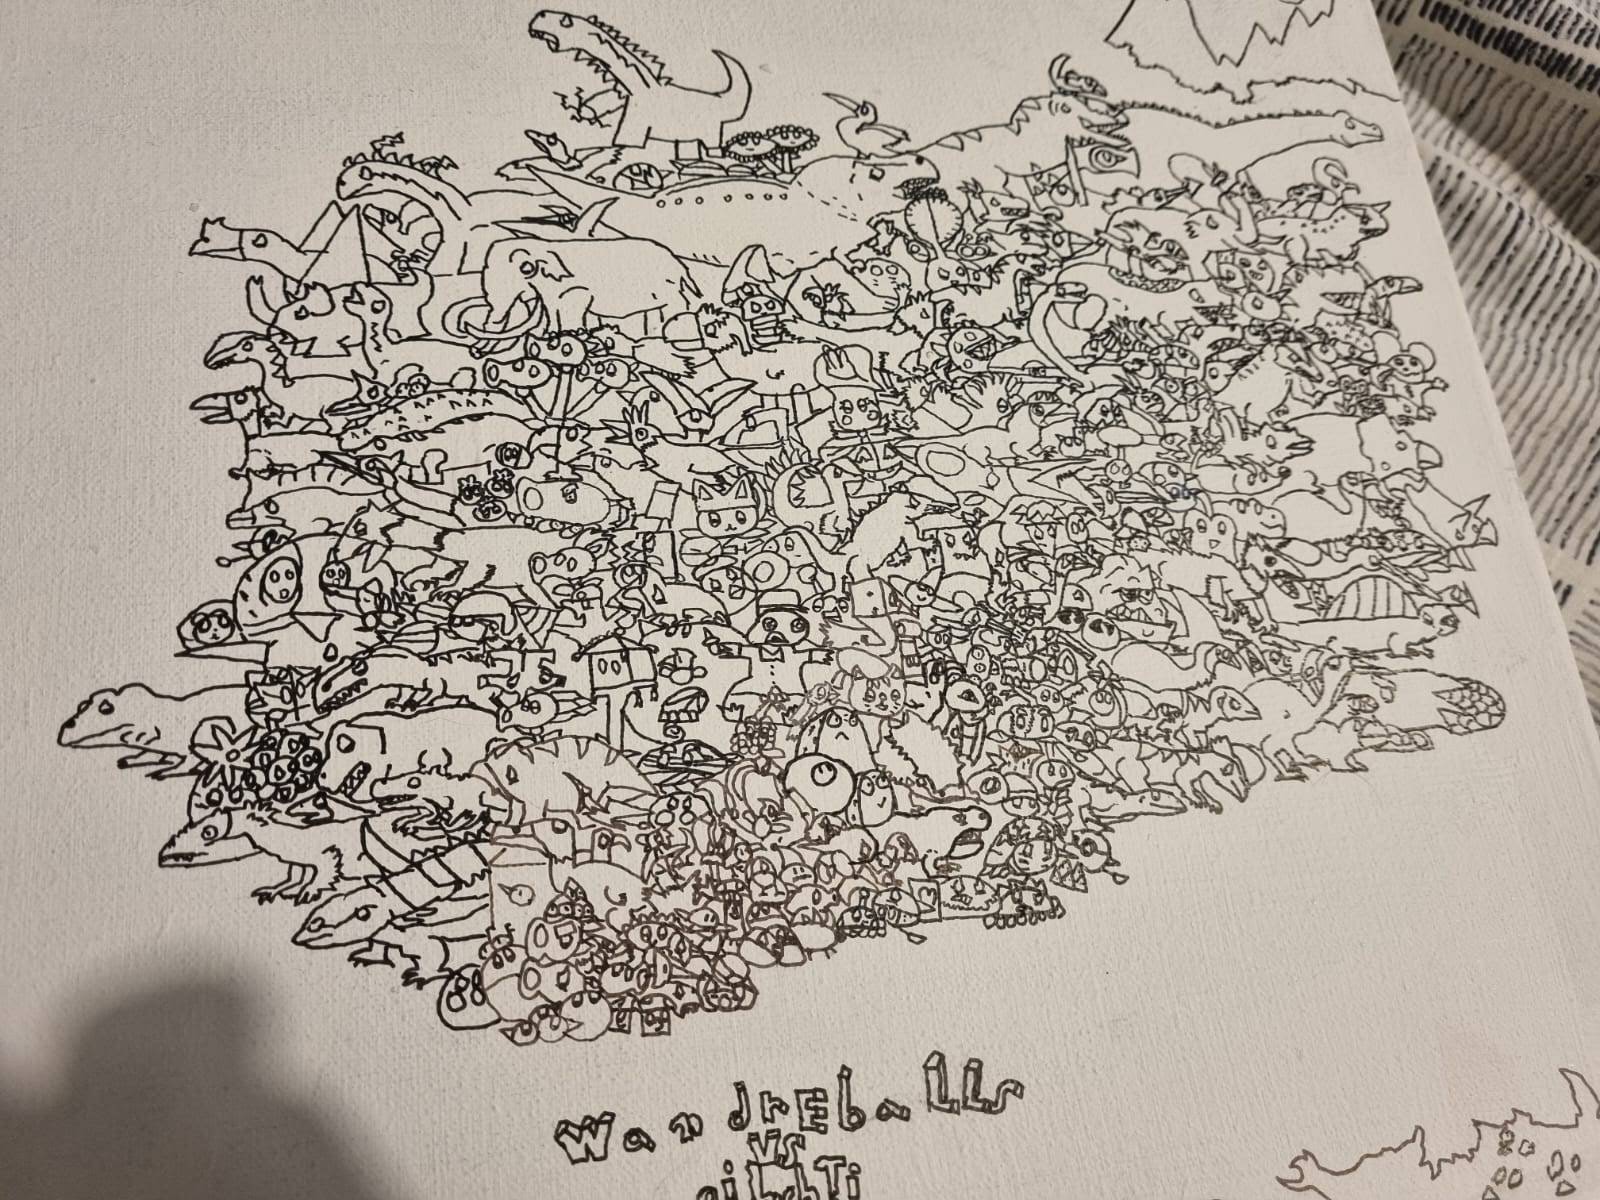 wandrEbaLLs
vs